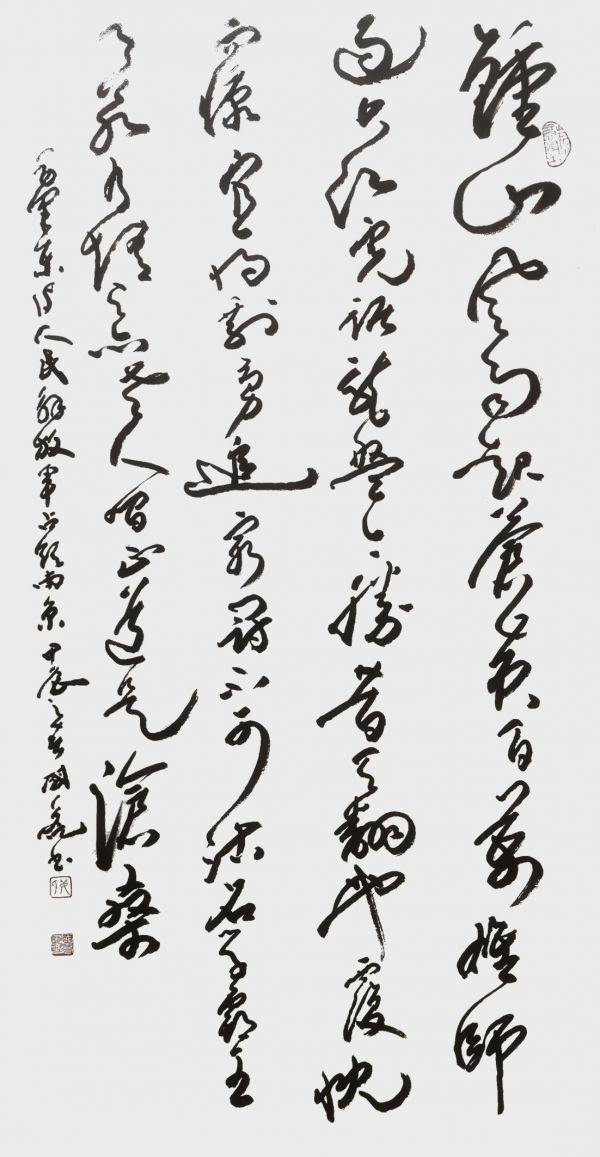 鍾山風雨起蒼黃百萬雄師
過大江虎踞龍盤今勝昔天翻地覆慨
而慷宜將剩勇追窮寇不可沽名學霸王
天若有情天亦老人間正道是滄桑
毛澤東詩人民解放軍占領南京 之春國書